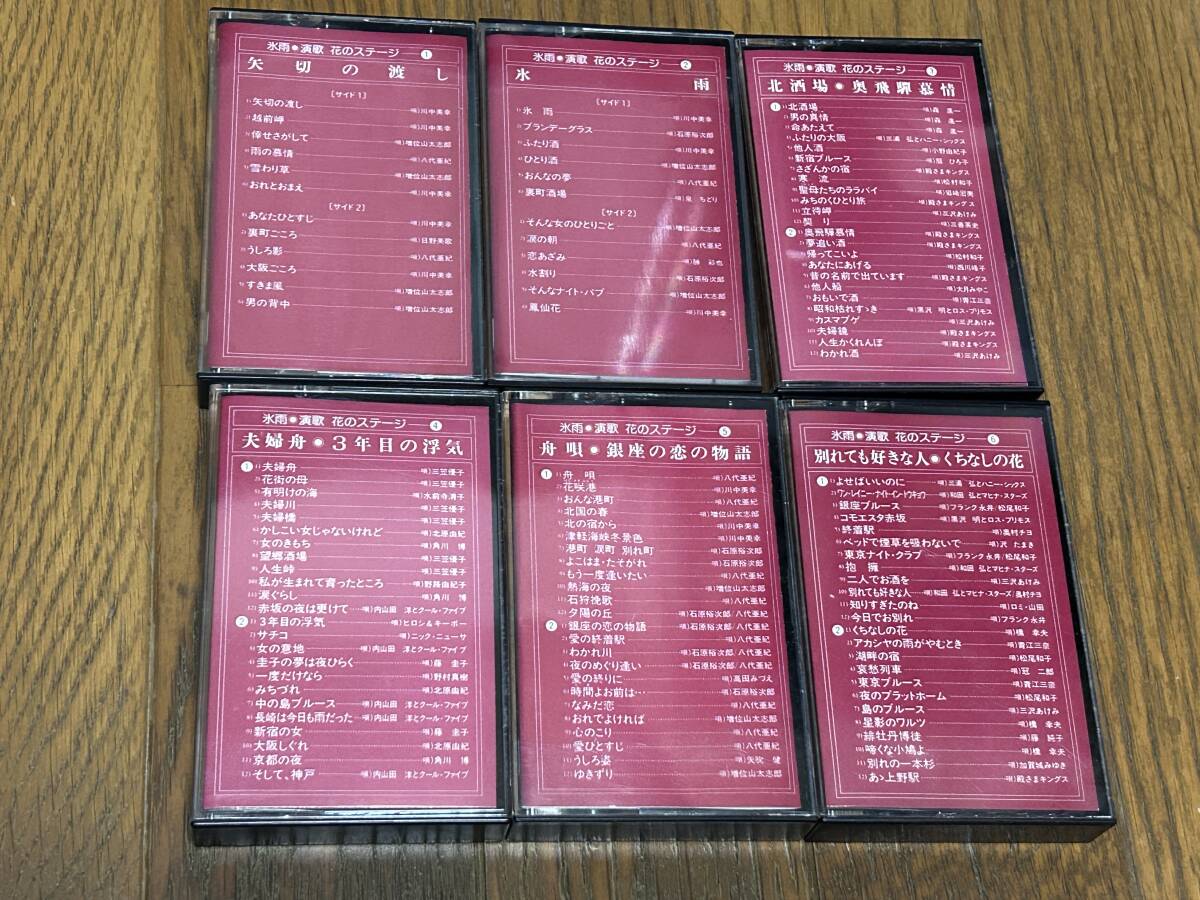 氷雨●演歌 花のステージ ①
矢切の渡し
〔サイド1〕
1)矢切の渡し 唄)川中美幸
2)越前岬 唄)川中美幸
3)倖せさがして 唄)増位山太志郎
4)雨の慕情 唄)八代亜紀
5)雪わり草 唄)増位山太志郎
6)おれとおまえ 唄)川中美幸
〔サイド2〕
1)あなたひとすじ 唄)川中美幸
2)裏町ごころ 唄)日野美歌
3)うしろ影 唄)八代亜紀
4)大阪ごころ 唄)川中美幸
5)すきま風 唄)増位山太志郎
6)男の背中 唄)増位山太志郎
氷雨●演歌 花のステージ ②
氷雨
〔サイド1〕
1)氷雨 唄)川中美幸
2)ブランデーグラス 唄)石原裕次郎
3)ふたり酒 唄)川中美幸
4)ひとり酒 唄)増位山太志郎
5)おんなの夢 唄)八代亜紀
6)裏町酒場 唄)泉 ちどり
〔サイド2〕
1)そんな女のひとりごと 唄)増位山太志郎
2)涙の朝 唄)八代亜紀
3)恋あざみ 唄)勝 彩也
4)水割り 唄)石原裕次郎
5)そんなナイト・パブ 唄)増位山太志郎
6)鳳仙花 唄)川中美幸
氷雨●演歌 花のステージ ③
北酒場●奥飛騨慕情
① 1)北酒場 唄)森 進一
2)男の真情 唄)森 進一
3)命あたえて 唄)森 進一
4)ふたりの大阪 唄)三浦 弘とハニー・シックス
5)他人酒 唄)小野由紀子
6)新宿ブルース 唄)扇 ひろ子
7)さざんかの宿 唄)殿さまキングス
8)寒流 唄)松村和子
9)聖母たちのララバイ 唄)岩崎宏美
10)みちのくひとり旅 唄)殿さまキングス
11)立待岬 唄)三沢あけみ
12)契り 唄)三善英史
② 1)奥飛騨慕情 唄)殿さまキングス
2)夢追い酒 唄)殿さまキングス
3)帰ってこいよ 唄)松村和子
4)あなたにあげる 唄)西川峰子
5)昔の名前で出ています 唄)殿さまキングス
6)他人船 唄)大月みやこ
7)おもいで酒 唄)青江三奈
8)昭和枯れすゝき 唄)黒沢 明とロス・プリモス
9)カスマプゲ 唄)三沢あけみ
10)夫婦鏡 唄)殿さまキングス
11)人生かくれんぼ 唄)殿さまキングス
12)わかれ酒 唄)三沢あけみ
氷雨●演歌 花のステージ ④
夫婦舟●3年目の浮気
① 1)夫婦舟 唄)三笠優子
2)花街の母 唄)三笠優子
3)有明けの海 唄)水前寺清子
4)夫婦川 唄)三笠優子
5)夫婦橋 唄)三笠優子
6)かしこい女じゃないけれど 唄)北原由紀
7)女のきもち 唄)角川 博
8)望郷酒場 唄)三笠優子
9)人生峠 唄)三笠優子
10)私が生まれて育ったところ 唄)野路由紀子
11)涙ぐらし 唄)角川 博
12)赤坂の夜は更けて 唄)内山田 洋とクール・ファイブ
② 1)3年目の浮気 唄)ヒロシ&キーボー
2)サチコ 唄)ニック・ニューサ
3)女の意地 唄)内山田 洋とクール・ファイブ
4)圭子の夢は夜ひらく 唄)藤 圭子
5)一度だけなら 唄)野村真樹
6)みちづれ 唄)北原由紀
7)中の島ブルース 唄)内山田 洋とクール・ファイブ
8)長崎は今日も雨だった 唄)内山田 洋とクール・ファイブ
9)新宿の女 唄)藤 圭子
10)大阪しぐれ 唄)北原由紀
11)京都の夜 唄)角川 博
12)そして、神戸 唄)内山田 洋とクール・ファイブ
氷雨●演歌 花のステージ ⑤
舟唄●銀座の恋の物語
① 1)舟唄 唄)八代亜紀
2)花咲港 唄)川中美幸
3)おんな港町 唄)八代亜紀
4)北国の春 唄)増位山太志郎
5)北の宿から 唄)川中美幸
6)津軽海峡冬景色 唄)川中美幸
7)港町 涙町 別れ町 唄)石原裕次郎
8)よこはま・たそがれ 唄)石原裕次郎
9)もう一度逢いたい 唄)八代亜紀
10)熱海の夜 唄)増位山太志郎
11)石狩挽歌 唄)八代亜紀
12)夕陽の丘 唄)石原裕次郎/八代亜紀
② 1)銀座の恋の物語 唄)石原裕次郎/八代亜紀
2)愛の終着駅 唄)八代亜紀
3)わかれ川 唄)石原裕次郎/八代亜紀
4)夜のめぐり逢い 唄)石原裕次郎/八代亜紀
5)愛の終りに 唄)高田みづえ
6)時間よお前は… 唄)石原裕次郎
7)なみだ恋 唄)八代亜紀
8)おれでよければ 唄)増位山太志郎
9)心のこり 唄)八代亜紀
10)愛ひとすじ 唄)八代亜紀
11)うしろ姿 唄)矢吹 健
12)ゆきずり 唄)増位山太志郎
氷雨●演歌 花のステージ ⑥
別れても好きな人●くちなしの花
① 1)よせばいいのに 唄)三浦 弘とハニー・シックス
2)ワン・レイニー・ナイト・イン・トウキョウ 唄)和田 弘とマヒナ・スターズ
3)銀座ブルース 唄)フランク永井/松尾和子
4)コモエスタ赤坂 唄)黒沢 明とロス・プリモス
5)終着駅 唄)奥村チヨ
6)ベッドで煙草を吸わないで 唄)沢 たまき
7)東京ナイト・クラブ 唄)フランク永井/松尾和子
8)抱擁 唄)和田 弘とマヒナ・スターズ
9)二人でお酒を 唄)三沢あけみ
10)別れても好きな人 唄)和田 弘とマヒナ・スターズ/奥村チヨ
11)知りすぎたのね 唄)ロミ・山田
12)今日でお別れ 唄)フランク永井
② 1)くちなしの花 唄)橋 幸夫
2)アカシヤの雨がやむとき 唄)青江三奈
3)湖畔の宿 唄)松尾和子
4)哀愁列車 唄)冠 二郎
5)東京ブルース 唄)青江三奈
6)夜のプラットホーム 唄)松尾和子
7)島のブルース 唄)三沢あけみ
8)星影のワルツ 唄)橋 幸夫
9)緋牡丹博徒 唄)藤 純子
10)啼くな小鳩よ 唄)橋 幸夫
11)別れの一本杉 唄)加賀城みゆき
12)あゝ上野駅 唄)殿さまキングス